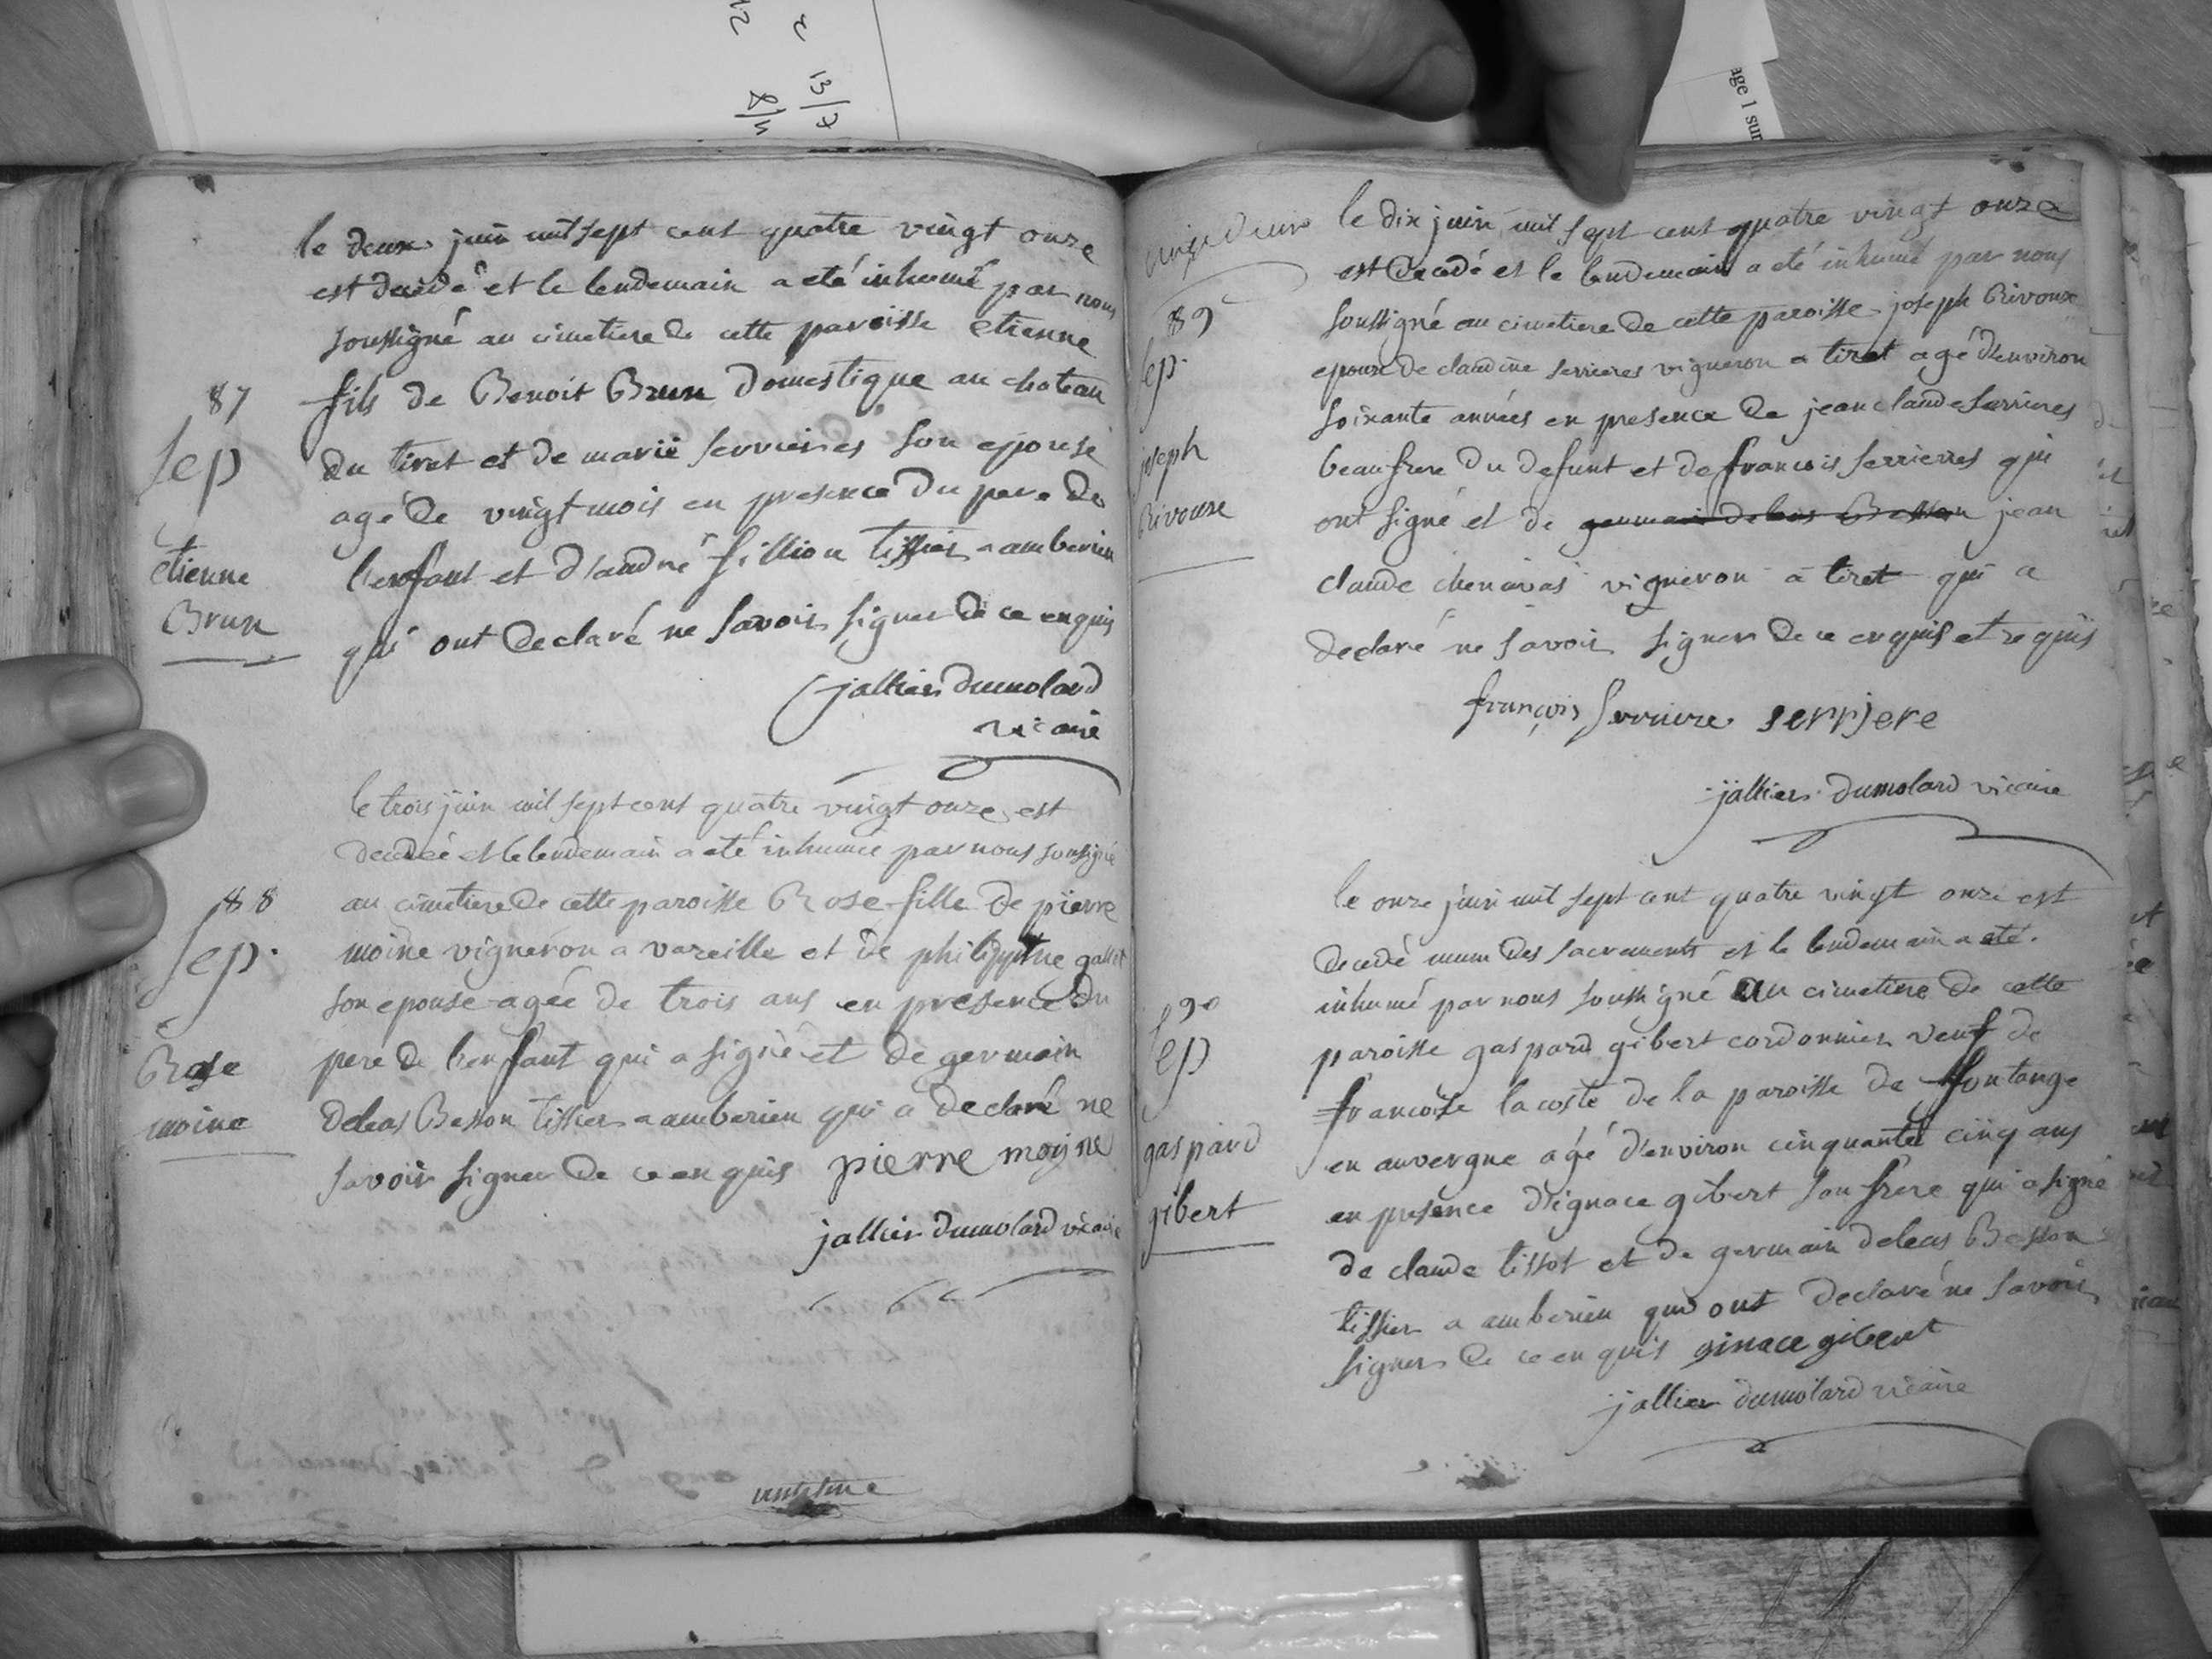 12
13/7
8/11
age 1 sur
le deux juin mil sept cent quatre vingt onze
est decédé et le lendemain a eté inhumé par nous
soussigné au cimetiere de cette paroisse etienne
fils de Benoit Brun domestique au chateau
du tiret et de marie serrieres son epouse
agé de vingt mois en presence du pere de
l'enfant et d'andré fillion tissier a amberieu
qui ont declaré ne savoir signer de ce enquis
jallier dumolard
vicaire
87
sep
etienne
Brun
le trois juin mil sept cent quatre vingt onze est
decedée et le lendemain a eté inhumée par nous soussigné
au cimetiere de cette paroisse Rose fille de pierre
moine vigneron a vareille et de philippine gallet
son epouse agée de trois ans en presence du
pere de l'enfant qui a signé et de germain
deleas Besson tissier a amberieu qui a declaré ne
savoir signer de ce enquis pierre moyne
jallier dumolard vicaire
88
sep.
Rose
moine
le dix juin mil sept cent quatre vingt onze
est decedé et le lendemain a eté inhumé par nous
soussigné au cimetiere de cette paroisse joseph Rivoux
epoux de claudine serrieres vigneron a tiret agé d'environ
soixante années en presence de jean claude serrieres
beaufrere du defunt et de francois serrieres qui
ont signé et de germain deleas Besson jean
claude chenavas vigneron a tiret qui a
declaré ne savoir signer de ce enquis et requis
françois serriere serrjere
jallier dumolard vicaire
89
sep.
joseph
Rivoux
le onze juin mil sept cent quatre vingt onze est
decedé muni des sacrements et le lendemain a eté
inhumé par nous soussigné au cimetiere de cette
paroisse gaspard gibert cordonnier veuf de
francoise lacoste de la paroisse de fontange
en auvergne agé d'environ cinquante cinq ans
en presence d'ignace gibert son frere qui a signé
de claude tissot et de germain deleas Besson
tissier a amberieu qui ont declaré ne savoir
signer de ce enquis ginace gibert
jallier dumolard vicaire
90
sep
gaspard
gibert